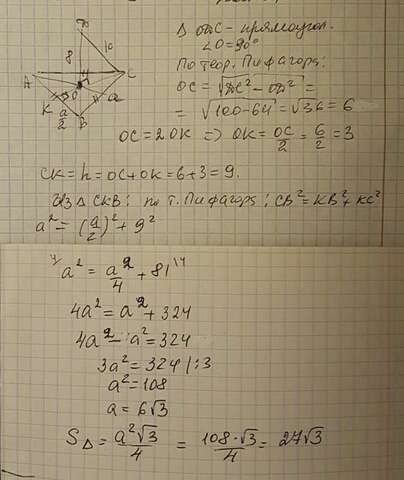 Δ DOC - прямоугол.
∠O=90°
По теор. Пифагора:
OC = √(DC² - OD²) =
= √(100-64) = √36 = 6
OC = 2OK ⇒ OK = OC/2 = 6/2 = 3
8
10
A
C
O
K
a
a/2
B
CK = h = OC + OK = 6+3 = 9.
Из Δ CKB: по т. Пифагора; CB² = KB² + KC²
a² = (a/2)² + 9²
a² = a²/4 + 81
4a² = a² + 324
4a² - a² = 324
3a² = 324 /:3
a² = 108
a = 6√3
S△ = a²√3/4 = 108·√3/4 = 27√3